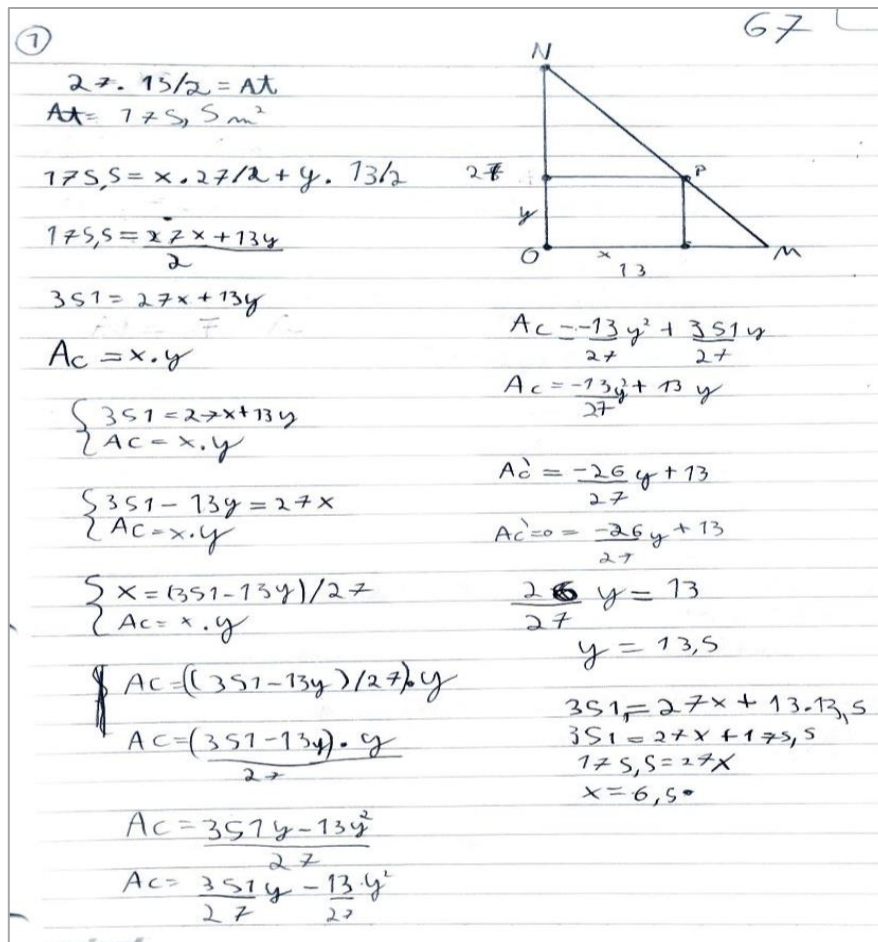 67
①
27 . 13/2 = At
At = 175,5 m²
175,5 = x . 27/2 + y . 13/2
175,5 = 27x + 13y
2
351 = 27x + 13y
Ac = x.y
{ 351 = 27x + 13y
{ Ac = x.y
{ 351 - 13y = 27x
{ Ac = x.y
{ x = (351 - 13y)/27
{ Ac = x.y
Ac = ((351 - 13y)/27).y
Ac = (351 - 13y) . y
27
Ac = 351y - 13y²
27
Ac = 351 y - 13 y²
27 27
N
27
P
y
O
x
13
M
Ac = -13 y² + 351 y
27 27
Ac = -13y² + 13 y
27
Ac' = -26 y + 13
27
Ac' = 0 = -26 y + 13
27
26 y = 13
27
y = 13,5
351 = 27x + 13.13,5
351 = 27x + 175,5
175,5 = 27x
x = 6,5.